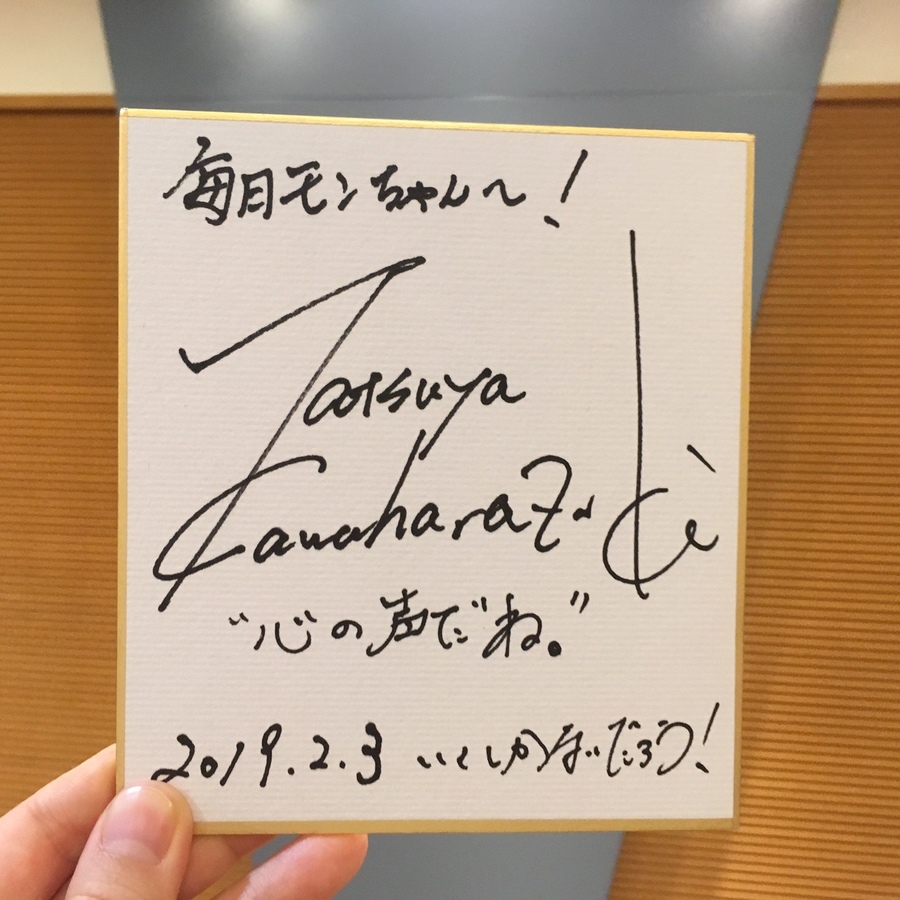 毎日モンちゃんへ!
Tatsuya
Kawaharazuki
"心の声だね。"
2019.2.3 いとしかないだろう!